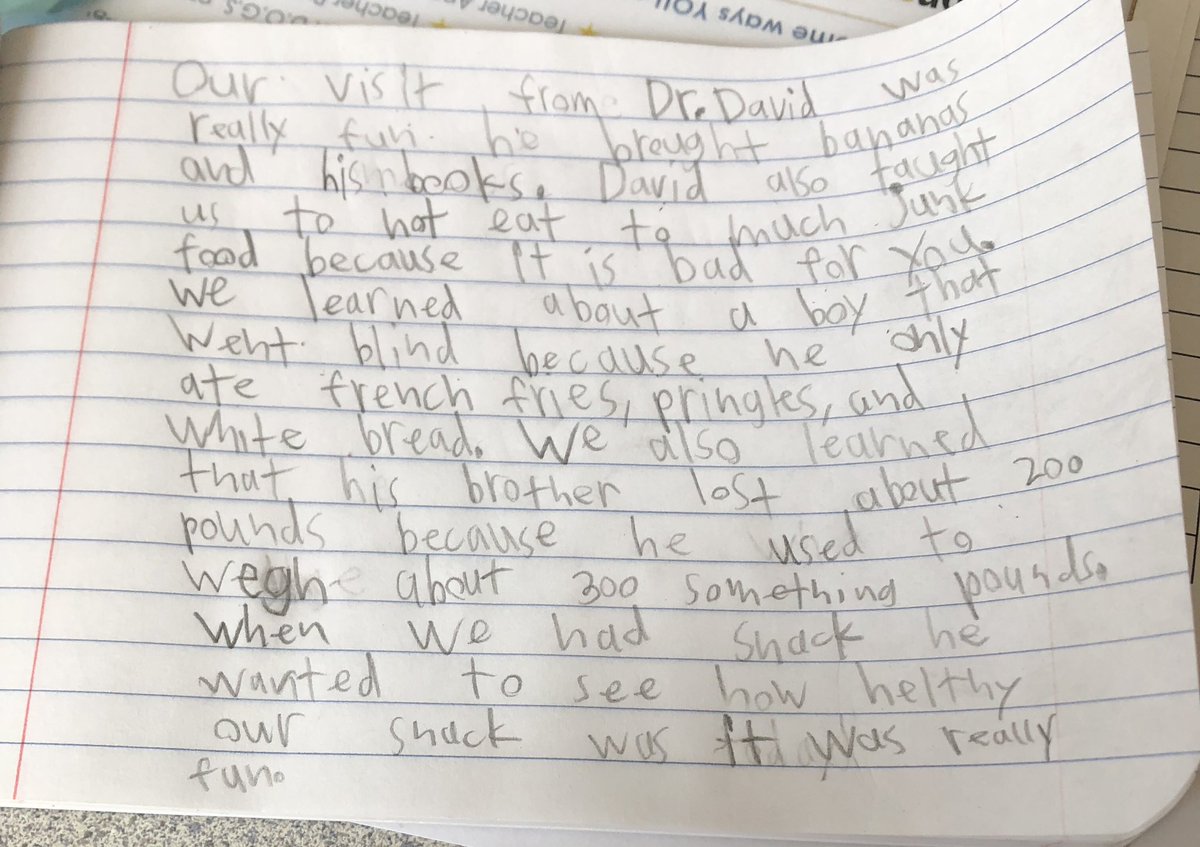 ome ways You
Teacher
Teacher
Our visit from Dr. David was
really fun. he brought bananas
and his books. David also taught
us to not eat to much junk
food because it is bad for you.
we learned about a boy that
went blind because he only
ate french fries, pringles, and
white bread. We also learned
that his brother lost about 200
pounds because he used to
wegh about 300 something pounds.
When we had snack he
wanted to see how helthy
our snack was it was really
fun.